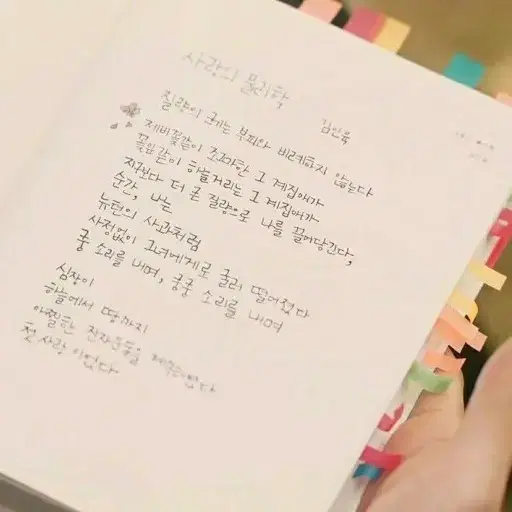 사랑의 물리학
김인육
질량의 크기는 부피와 비례하지 않는다
제비꽃같이 조그마한 그 계집애가
꽃잎같이 하늘거리는 그 계집애가
지구보다 더 큰 질량으로 나를 끌어당긴다,
순간, 나는
뉴턴의 사과처럼
사정없이 그녀에게로 굴러 떨어졌다
쿵 소리를 내며, 쿵쿵 소리를 내며
심장이
하늘에서 땅까지
아찔한 진자운동을 계속하였다
첫사랑 이었다